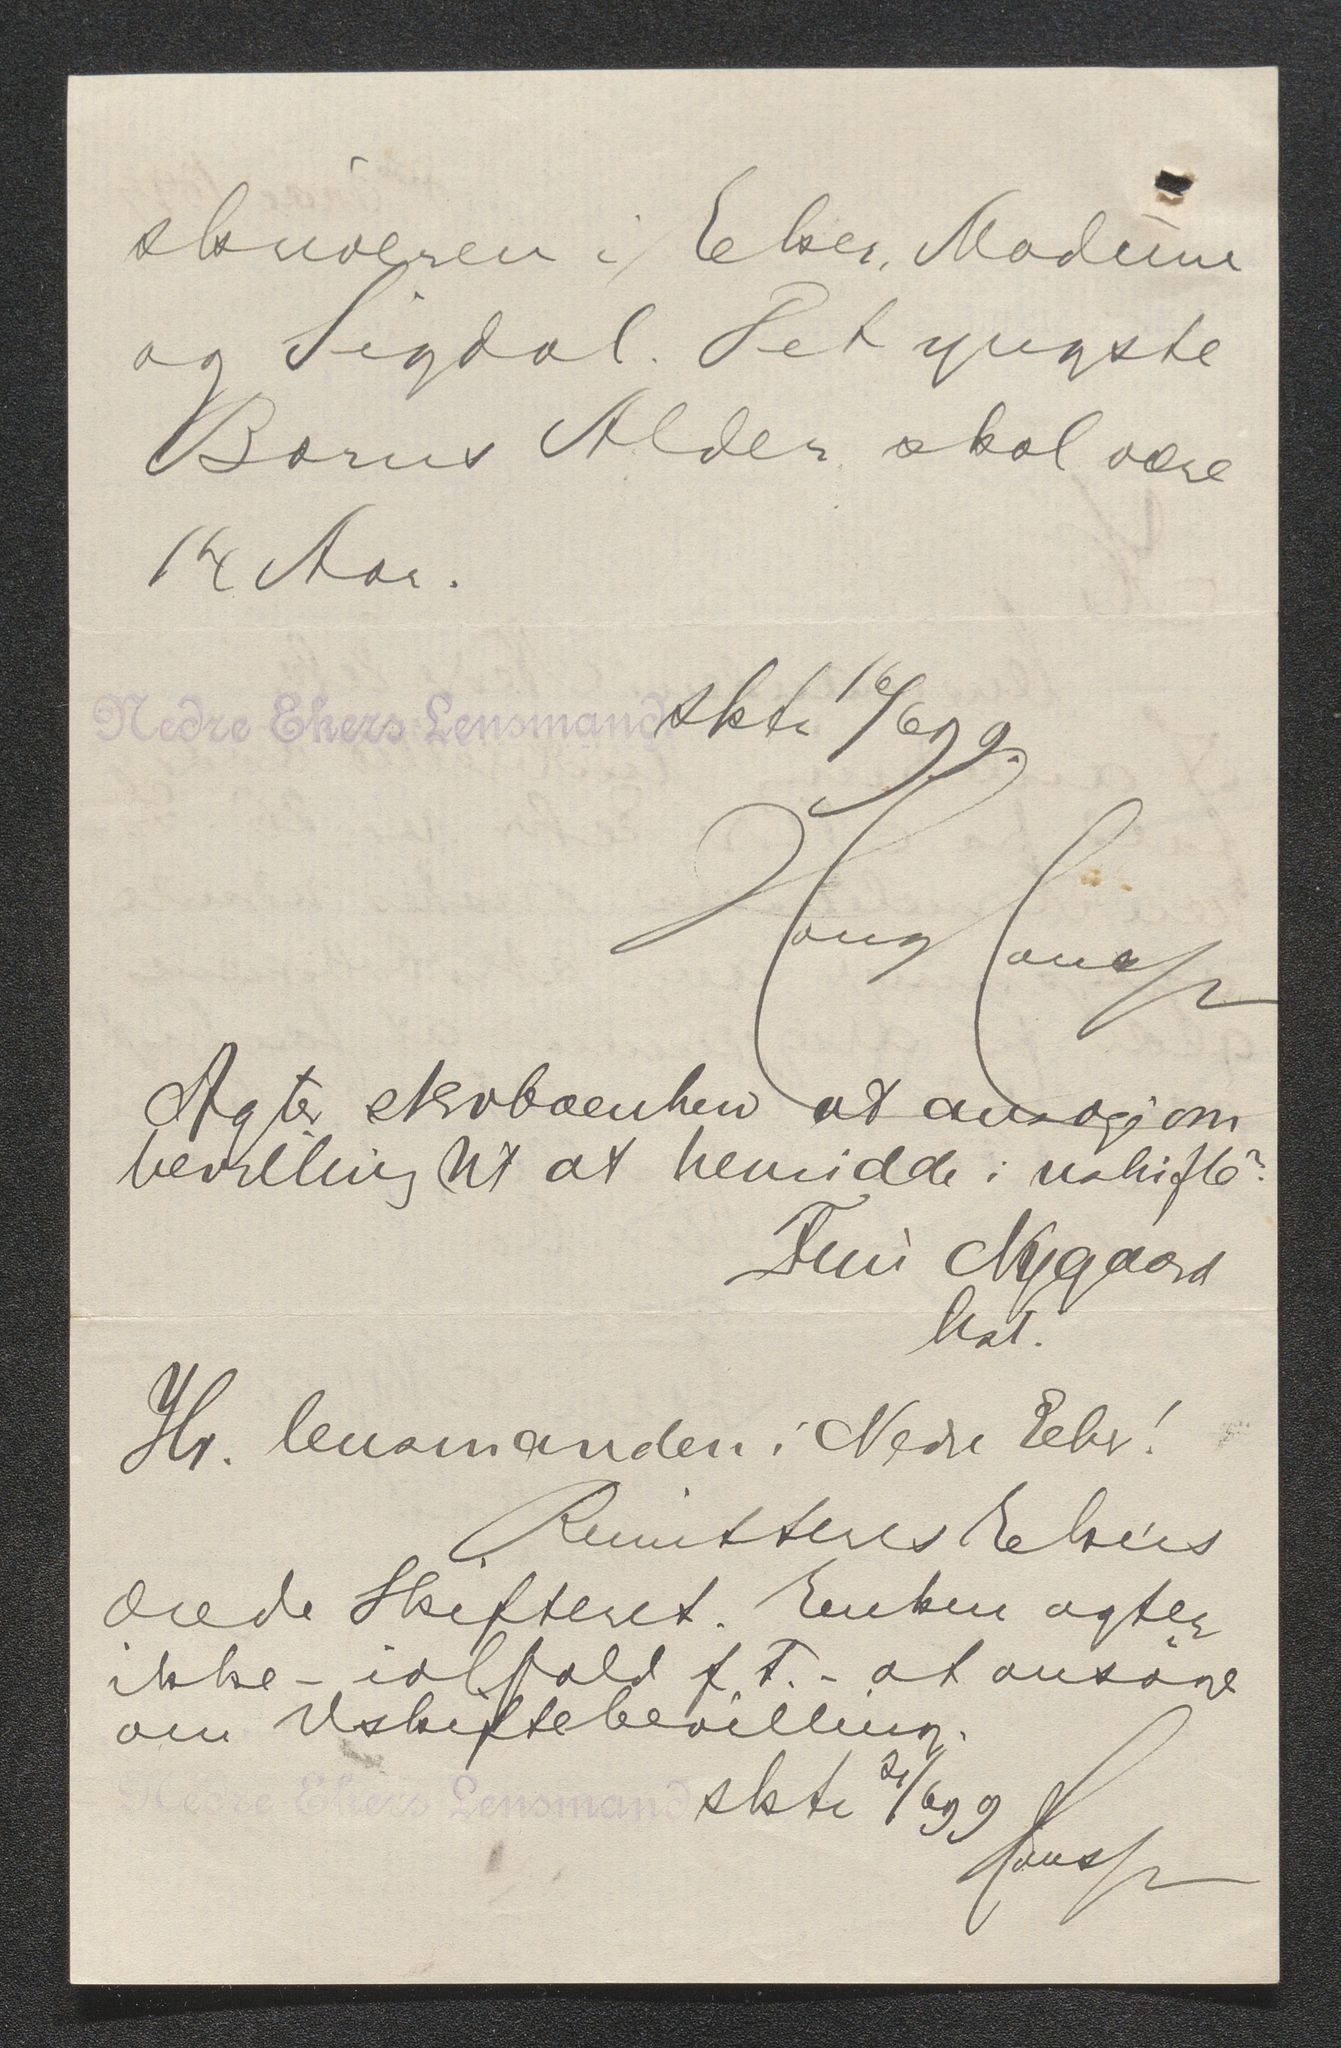 skriveren i Eker, Modum
og Sigdal. Det yngste
Barns Alder skal være
14 Aar.
Nedre Ekers Lensmand
sktr 16/6 99.
Agter skrboenken at ansøge om
bevilling til at hensidde i uskifte?
Nygaard
kst.
Hr. lensmanden i Nedre Eker!
Remitteres Ekers
ærede Skifteret. Enken agter
ikke - ialfald f. T. - at ansöge
om Uskiftebevilling.
Nedre Ekers Lensmand
sktr 21/6 99